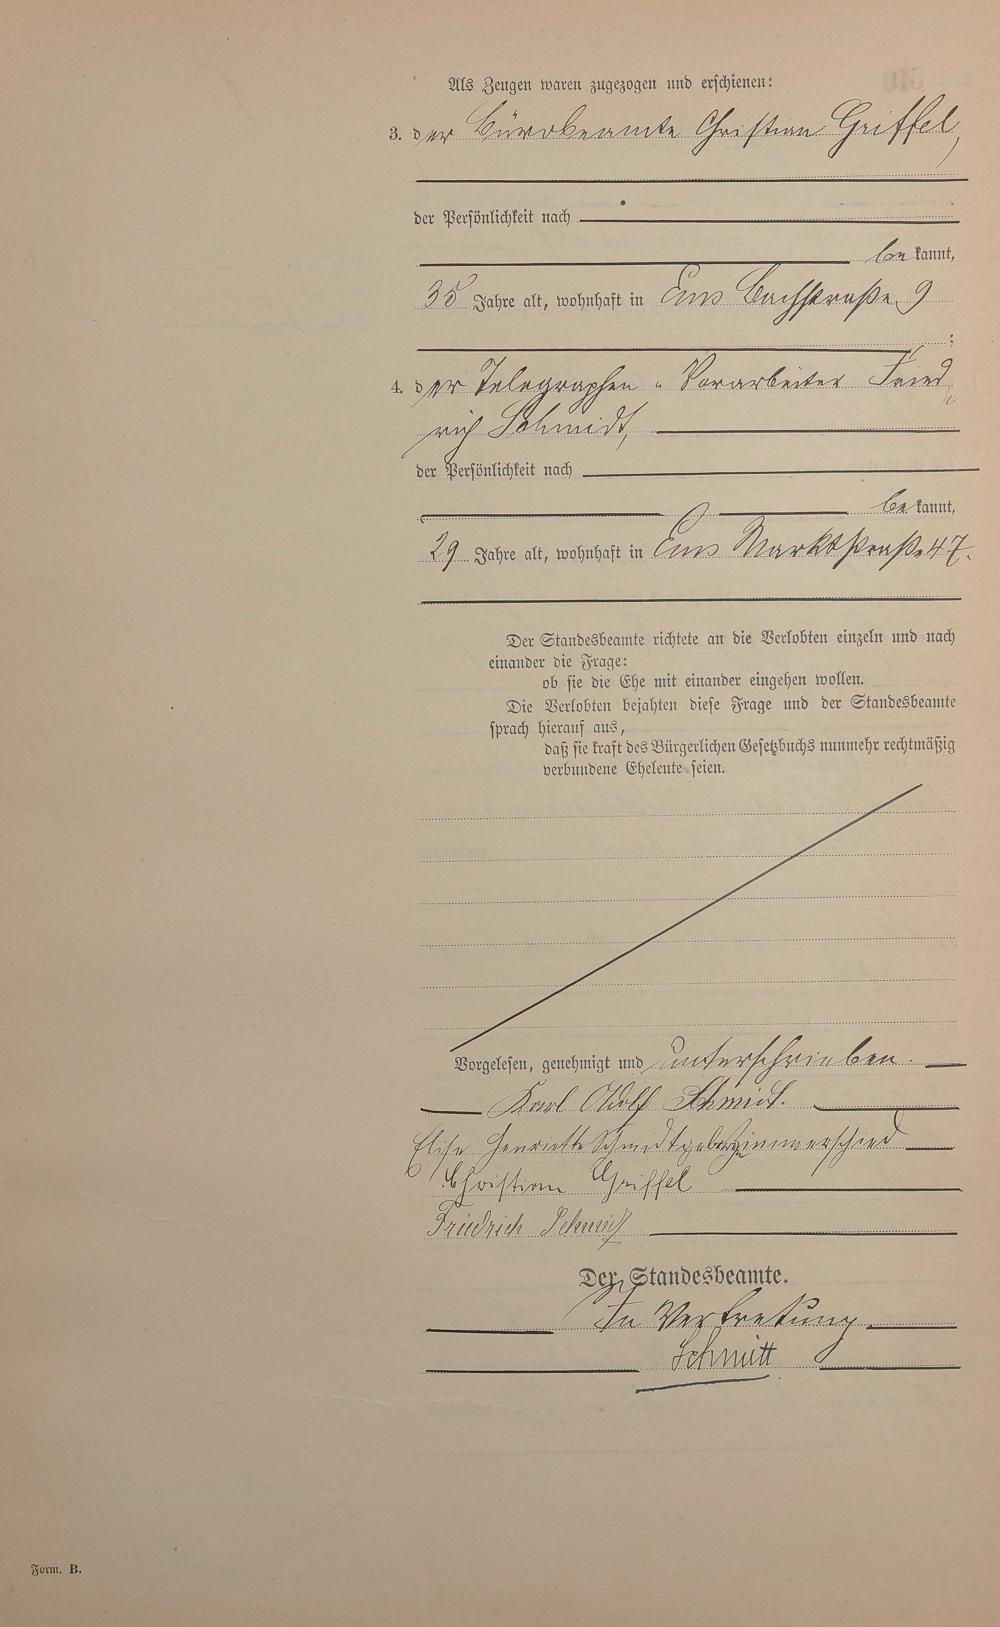 Als Zeugen waren zugezogen und erschienen:
3. der Bürobeamte Christian Griffel,
der Persönlichkeit nach
bekannt,
35 Jahre alt, wohnhaft in Ems Bachstraße 9
;
4. der Telegraphen-Vorarbeiter Fried-
rich Schmidt,
der Persönlichkeit nach
bekannt,
29 Jahre alt, wohnhaft in Ems Marktstraße 47.
Der Standesbeamte richtete an die Verlobten einzeln und nach
einander die Frage:
ob sie die Ehe mit einander eingehen wollen.
Die Verlobten bejahten diese Frage und der Standesbeamte
sprach hierauf aus,
daß sie kraft des Bürgerlichen Gesetzbuchs nunmehr rechtmäßig
verbundene Eheleute seien.
Vorgelesen, genehmigt und unterschrieben.
Karl Adolf Schmidt.
Elise Henriette Schmidt geborne Zimmerschied
Christian Griffel
Friedrich Schmidt
Der Standesbeamte.
In Vertretung
Schmitt
Form. B.